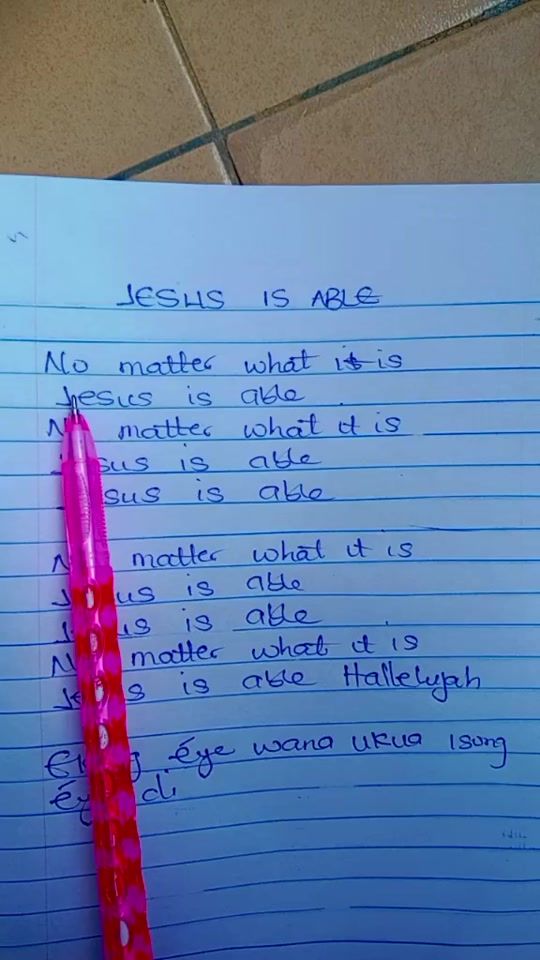 JESUS IS ABLE
No matter what it is
Jesus is able
matter what it is
sus is able
sus is able
matter what it is
us is able
us is able
matter what it is
s is able Hallelujah
éye wana ukua isong
di